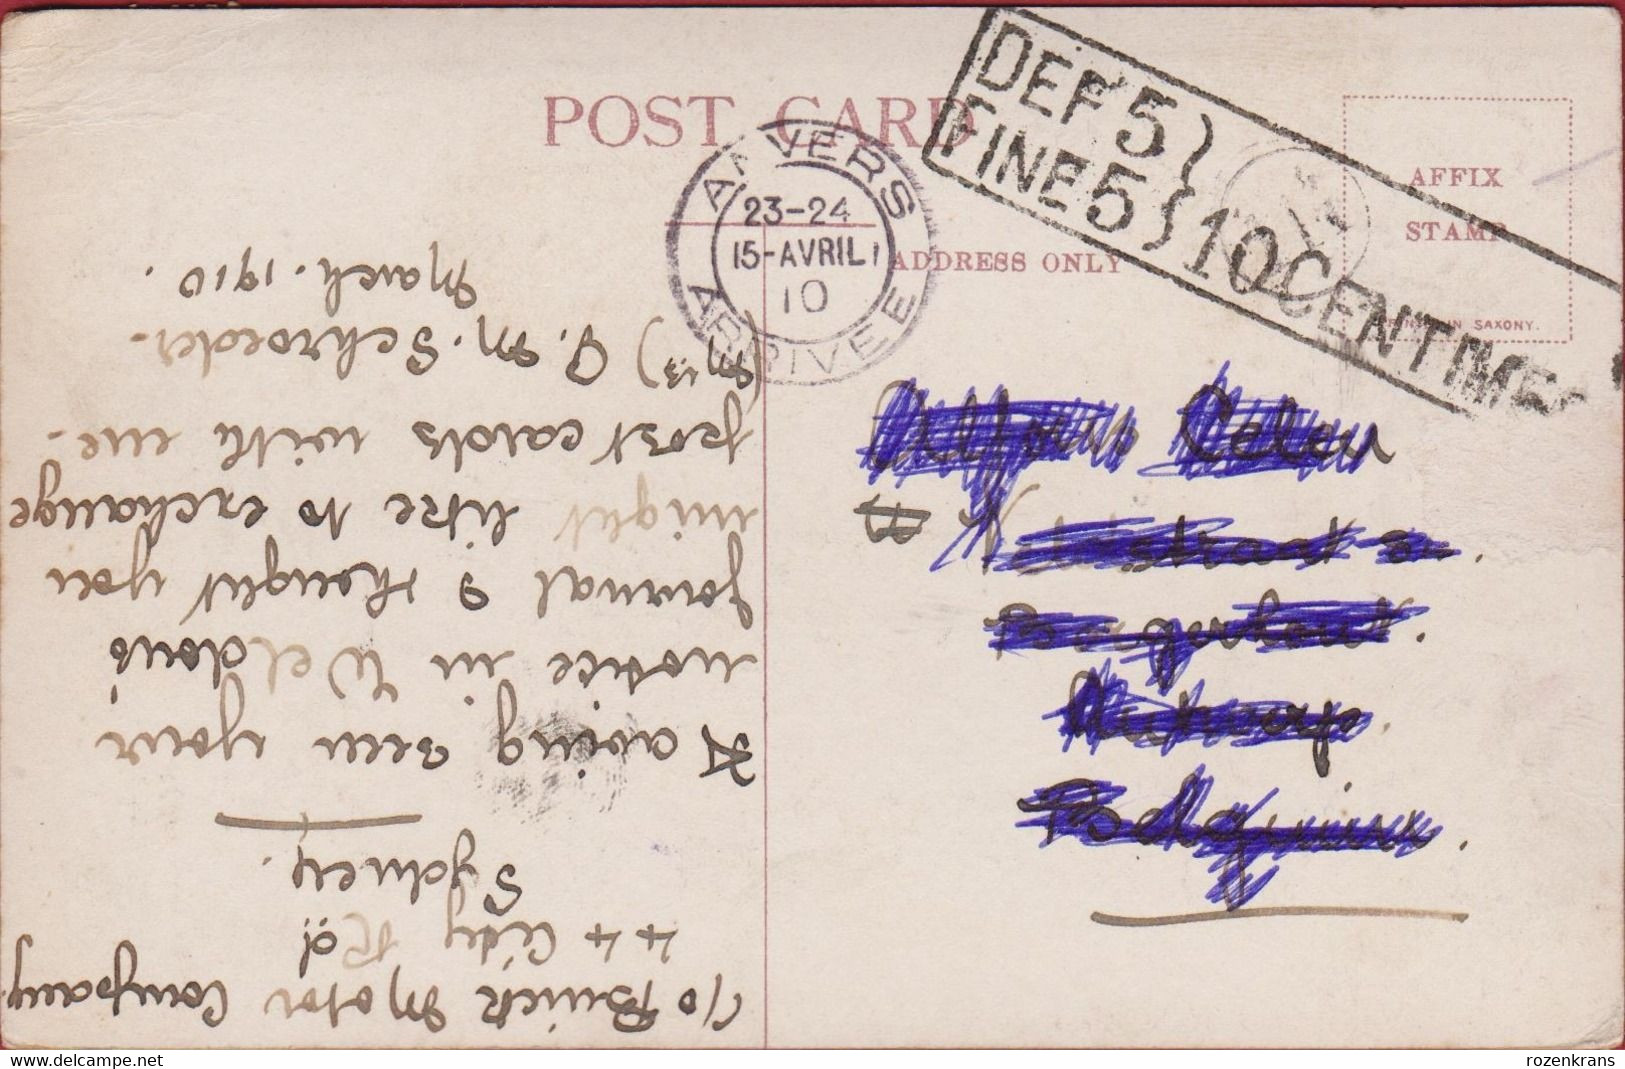 POST CARD
ANVERS
23-24
15-AVRIL
10
ARRIVEE
DEF 5
FINE 5
10 CENTIMES
AFFIX
STAMP
PRINTED IN SAXONY.
ADDRESS ONLY
c/o Buick Motor Company
44 City Rd
Sydney.
Having seen your
notice in Weldons
Journal I thought you
might like to exchange
post cards with me.
(Miss) G. M. Schroeder.
March. 1910.
Celen
Antwerp.
Belgium.
delcampe.net
rozenkrans